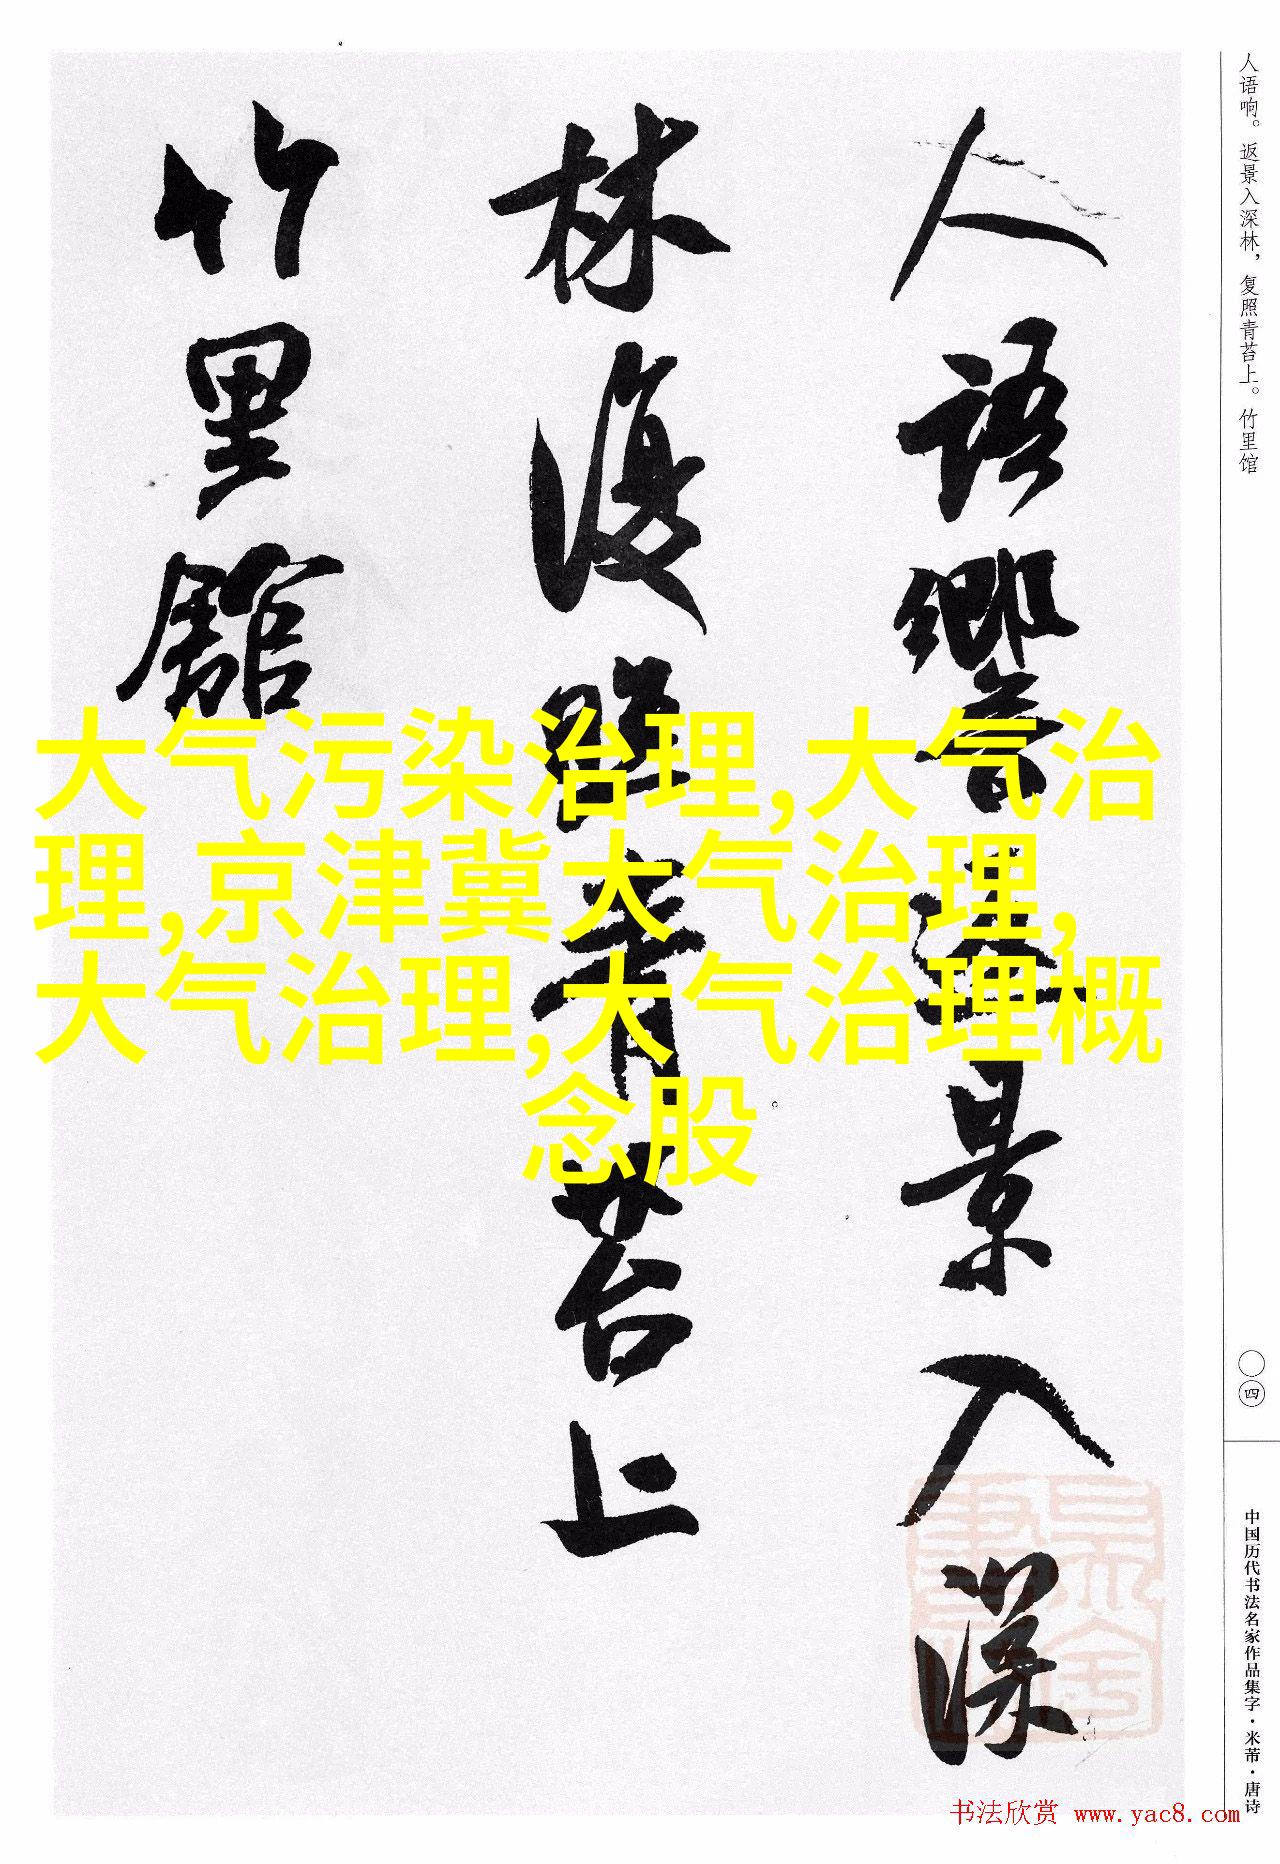 人语响。返景入深林，复照青苔上。竹里馆
人語響返景入深
林復照青苔上
竹里館
大气污染治理,大气治
理,京津冀大气治理,
大气治理,大气治理概
念股
四
中国历代书法名家作品集字·米芾·唐诗
书法欣赏 www.yac8.com